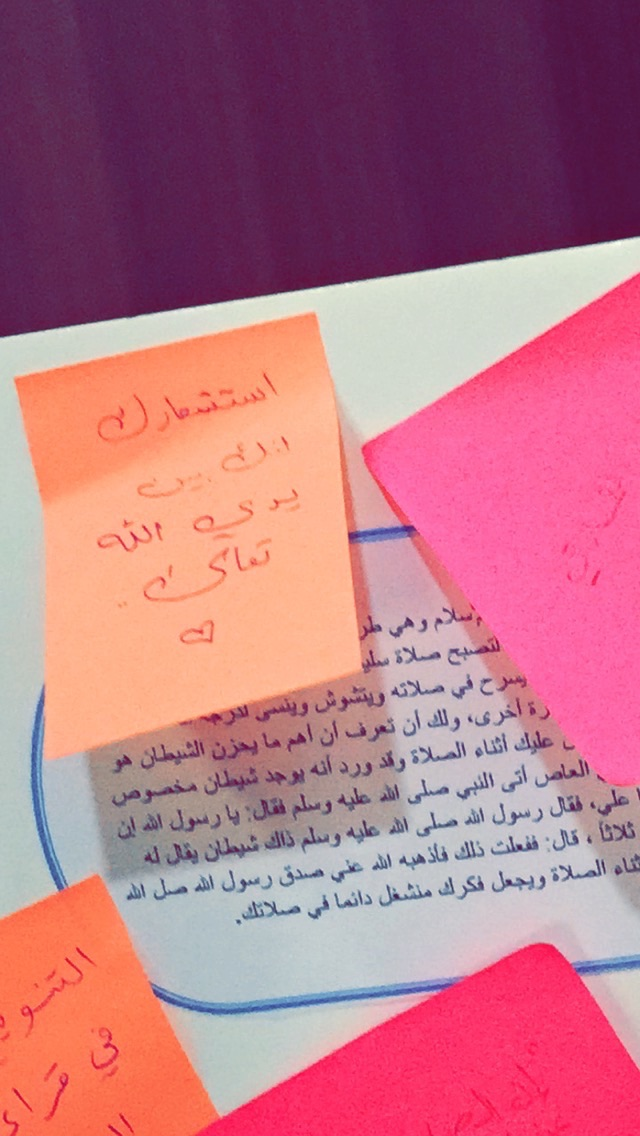 استشعارك
انك بين
يدي الله
تعالى ..
سلام وهي
لتصبح صلاة
يسرح في صلاته ويتشوش وينسى لدرجة
رة أخرى، ولك أن تعرف أن أهم ما يحزن الشيطان هو
عليك أثناء الصلاة وقد ورد أنه يوجد شيطان مخصوص
العاص أتى النبي صلى الله عليه وسلم فقال: يا رسول الله إن
علي، فقال رسول الله صلى الله عليه وسلم ذاك شيطان يقال له
ثلاثاً ، قال: ففعلت ذلك فأذهبه الله عني صدق رسول الله صل الله
ثناء الصلاة ويجعل فكرك منشغل دائما في صلاتك.
في